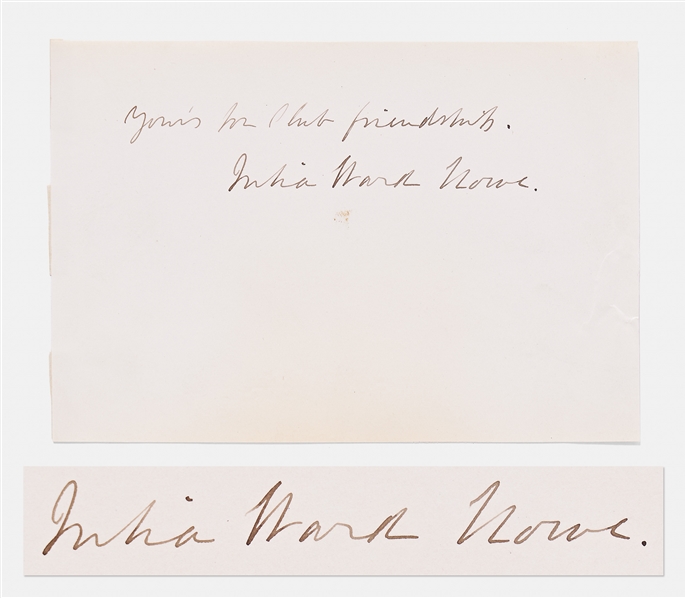 Yours for Club friendship.
Julia Ward Howe.
Julia Ward Howe.